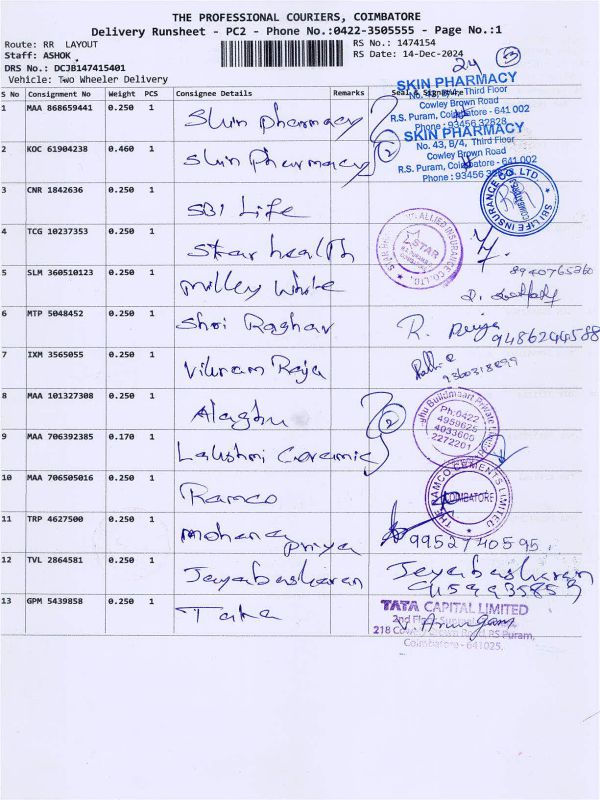 THE PROFESSIONAL COURIERS, COIMBATORE
Delivery Runsheet - PC2 - Phone No.:0422-3505555 - Page No.:1
Route: RR LAYOUT
RS No.: 1474154
Staff: ASHOK
RS Date: 14-Dec-2024
DRS No.: DCJB147415401
Vehicle: Two Wheeler Delivery
24 (53)
S No Consignment No Weight PCS Consignee Details Remarks Seal & Signature
SKIN PHARMACY
No. 43, B/4, Third Floor
Cowley Brown Road
R.S. Puram, Coimbatore - 641 002
Phone : 93456 32828
1 MAA 868659441 0.250 1 Skin pharmacy
SKIN PHARMACY
No. 43, B/4, Third Floor
Cowley Brown Road
R.S. Puram, Coimbatore - 641 002
Phone : 93456
2 KOC 61904238 0.460 1 Skin Pharmacy 2
3 CNR 1842636 0.250 1 SBI Life
SBI LIFE INSURANCE CO. LTD
COIMBATORE
4 TCG 10237353 0.250 1 Star health
ALLIED INSURANCE CO. LTD.
STAR
5 SLM 360510123 0.250 1 Milley White
8940765360
6 MTP 5048452 0.250 1 Shri Raghav R.
9486244588
7 IXM 3565055 0.250 1 Vikram Raja
9360318899
8 MAA 101327308 0.250 1 Alaghu
Buildmaart Private
Ph:0422
4959625
4033600
2272201
9 MAA 706392385 0.170 1 Lakshmi Ceramic 2
10 MAA 706505016 0.250 1 Ramco
THE RAMCO CEMENTS LIMITED
COIMBATORE
11 TRP 4627500 0.250 1 Mohana
Priya
9952740595.
12 TVL 2864581 0.250 1 Jeyabaskaran Jeyabaskaran
13 GPM 5439858 0.250 1 Tata
TATA CAPITAL LIMITED
2nd Floor
218 Cowley Brown Road, RS Puram,
Coimbatore - 641025.
V. Arumugam